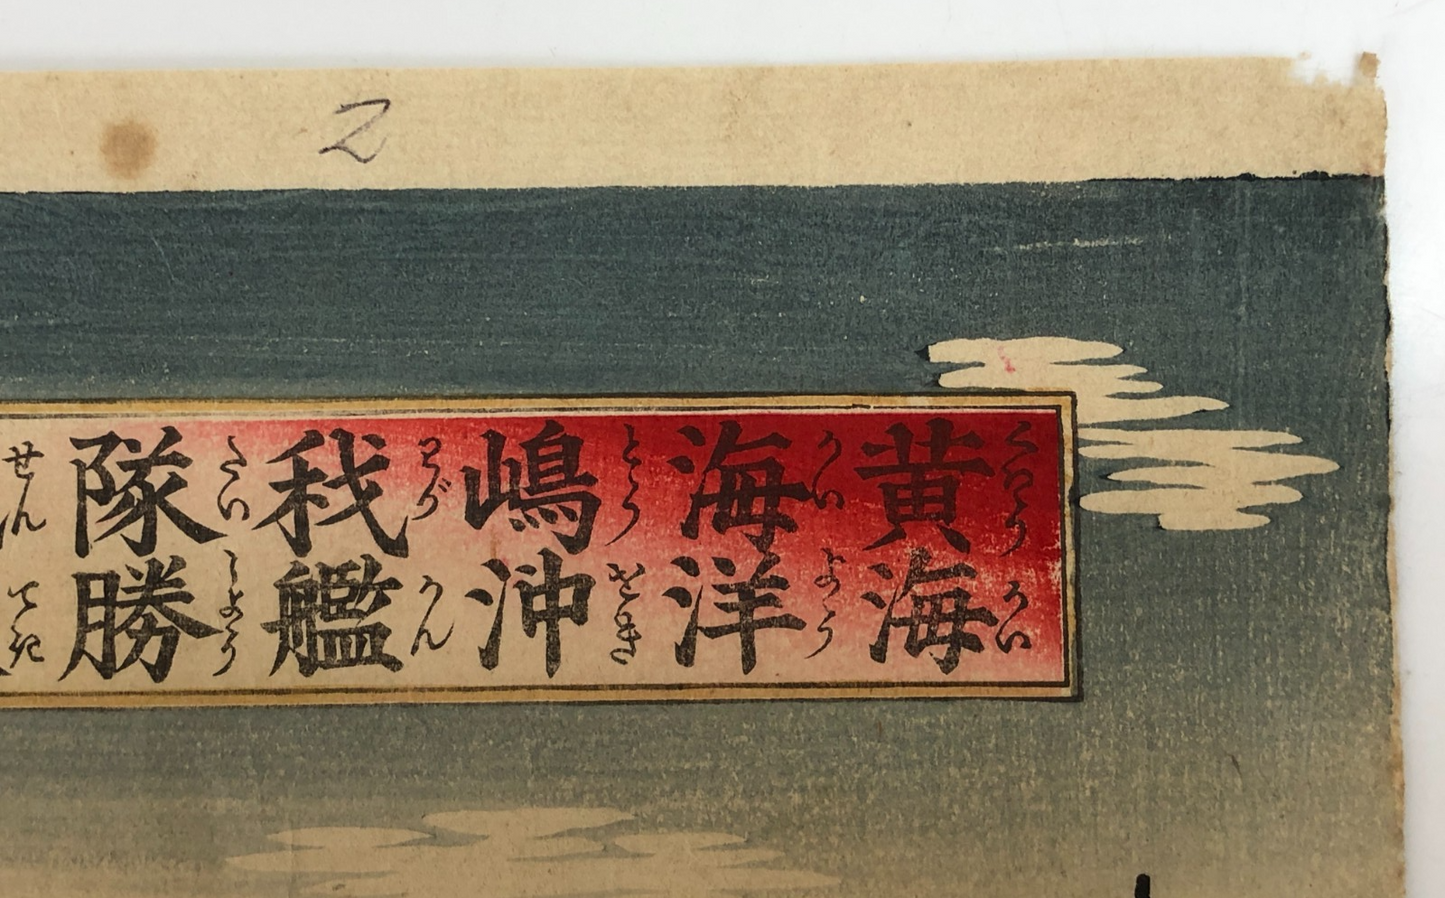 2
黄海
くわうかい
海洋
かいよう
嶋沖
とうをき
我艦
わがかん
隊勝
たいしよう
せん